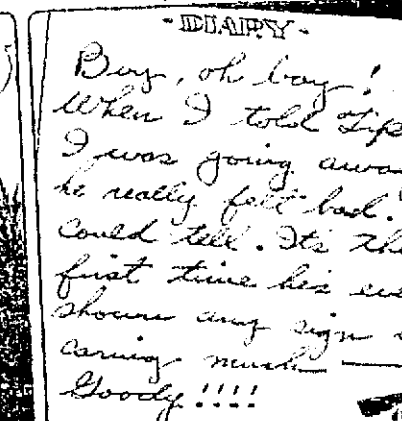 - DIARY -
Boy, oh boy!
When I told Tip
I was going awa
he really felt bad.
Could tell. It's the
first time he's eve
shown any sign
caring much —
Goody!!!!